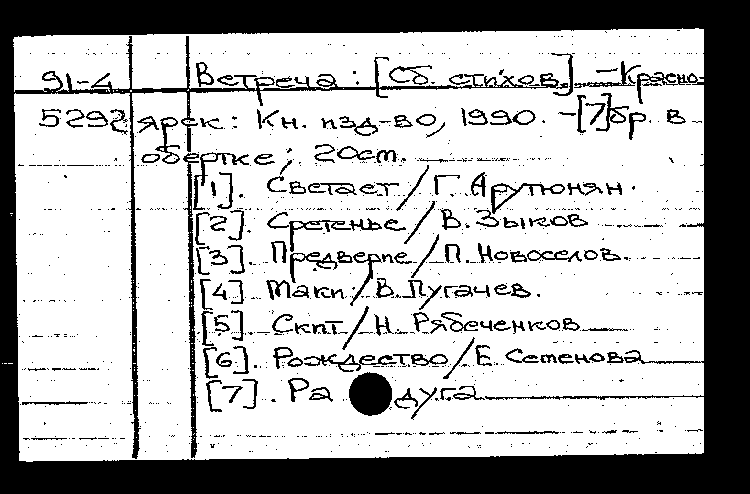 91-4 Встреча: [Сб. стихов]. - Красно-
5292 ярск: Кн. изд-во, 1990. - [7] бр. в
обертке; 20см.
[1]. Светает / Г. Арутюнян.
[2]. Сретенье / В. Зыков
[3]. Предверие / П. Новоселов.
[4]. Маки / В. Пугачев.
[5]. Скит / Н. Рябеченков
[6]. Рождество / Е. Семенова
[7]. Радуга